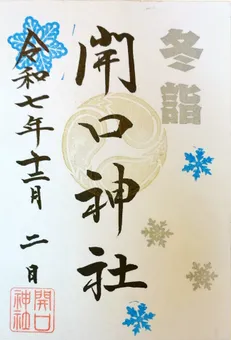 冬詣
開口神社
令和七年十二月二日
開口
神社